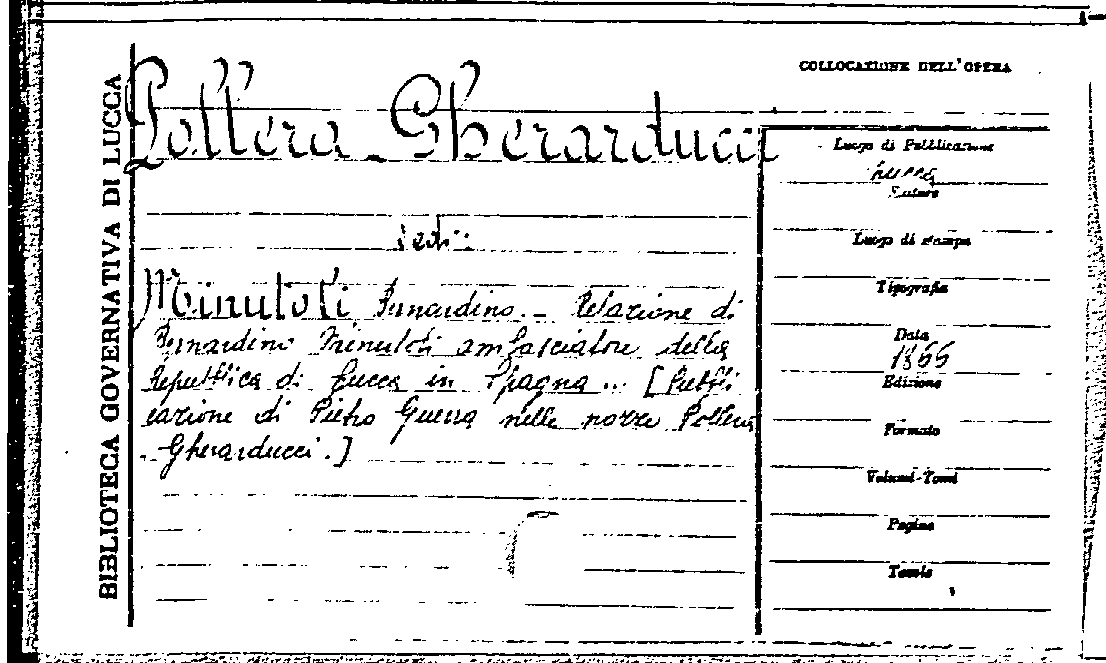 BIBLIOTECA GOVERNATIVA DI LUCCA
Pollera Gherarducci
vedi:
Minutoli Bernardino. - Relazione di
Bernardino Minutoli ambasciatore della
Repubblica di Lucca in Spagna ... [Pubbli
cazione di Pietro Guerra nelle nozze Pollera
Gherarducci.]
COLLOCAZIONE DELL'OPERA
Luogo di Pubblicazione
Lucca
Editore
Luogo di stampa
Tipografia
Data
Edizione
Formato
Volumi-Tomi
Pagine
Tavole